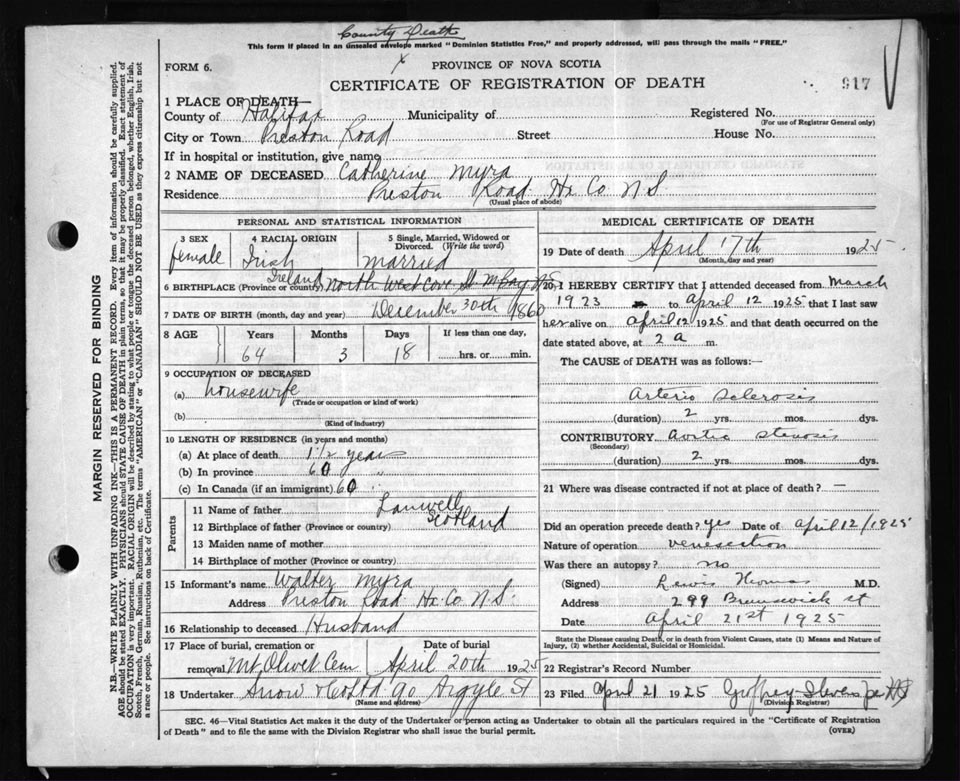 County Death
This form if placed in an unsealed envelope marked "Dominion Statistics Free," and properly addressed, will pass through the mails "FREE."
FORM 6. X PROVINCE OF NOVA SCOTIA
CERTIFICATE OF REGISTRATION OF DEATH 917
1 PLACE OF DEATH—
County of Halifax Municipality of Registered No.
(For use of Registrar General only)
City or Town Preston Road Street House No.
If in hospital or institution, give name
2 NAME OF DECEASED Catherine Myra
Residence Preston Road Hx Co N S
(Usual place of abode)
PERSONAL AND STATISTICAL INFORMATION
3 SEX 4 RACIAL ORIGIN 5 Single, Married, Widowed or Divorced. (Write the word)
female Irish married
6 BIRTHPLACE (Province or country) Ireland North West Cove St M Bay NS
7 DATE OF BIRTH (month, day and year) December 30th 1860
8 AGE Years Months Days If less than one day,
64 3 18 hrs. or min.
9 OCCUPATION OF DECEASED
(a) housewife
(Trade or occupation or kind of work)
(b)
(Kind of industry)
10 LENGTH OF RESIDENCE (in years and months)
(a) At place of death 1 1/2 years
(b) In province 60 "
(c) In Canada (if an immigrant) 60 "
Parents
11 Name of father
12 Birthplace of father (Province or country) Scotland
13 Maiden name of mother
14 Birthplace of mother (Province or country)
15 Informant's name Walter Myra
Address Preston Road Hx Co N S.
16 Relationship to deceased Husband
17 Place of burial, cremation or removal Date of burial
Mt Olivet Cem April 20th 1925
18 Undertaker Snow & Co Ltd 90 Argyle St
(Name and address)
MEDICAL CERTIFICATE OF DEATH
19 Date of death April 17th 1925
(Month, day and year)
20 I HEREBY CERTIFY that I attended deceased from March
1923 to April 12 1925 that I last saw
her alive on April 12 1925 and that death occurred on the
date stated above, at 2 a m.
The CAUSE of DEATH was as follows:—
Arterio Sclerosis
(duration) 2 yrs. mos. dys.
CONTRIBUTORY Aortic stenosis
(Secondary)
(duration) 2 yrs. mos. dys.
21 Where was disease contracted if not at place of death? —
Did an operation precede death? yes Date of April 12/1925
Nature of operation venesection
Was there an autopsy? no
(Signed) Lewis Thomas M.D.
Address 299 Brunswick st
Date April 21st 1925
State the Disease causing Death, or in death from Violent Causes, state (1) Means and Nature of
Injury, (2) whether Accidental, Suicidal or Homicidal.
22 Registrar's Record Number
23 Filed April 21 1925
(Division Registrar)
SEC. 46—Vital Statistics Act makes it the duty of the Undertaker or person acting as Undertaker to obtain all the particulars required in the "Certificate of Registration
of Death" and to file the same with the Division Registrar who shall issue the burial permit. (OVER)
MARGIN RESERVED FOR BINDING
N.B.—WRITE PLAINLY WITH UNFADING INK—THIS IS A PERMANENT RECORD. Every item of information should be carefully supplied.
AGE should be stated EXACTLY. PHYSICIANS should STATE CAUSE OF DEATH in plain terms, so that it may be properly classified. Exact statement of
OCCUPATION is very important. RACIAL ORIGIN will be described by stating to what people or tongue the deceased person belonged, whether English, Irish,
Scotch, French, German, Russian, Ruthenian, etc. The terms "AMERICAN" or "CANADIAN" SHOULD NOT BE USED as they express citizenship but not
a race or people. See instructions on back of Certificate.